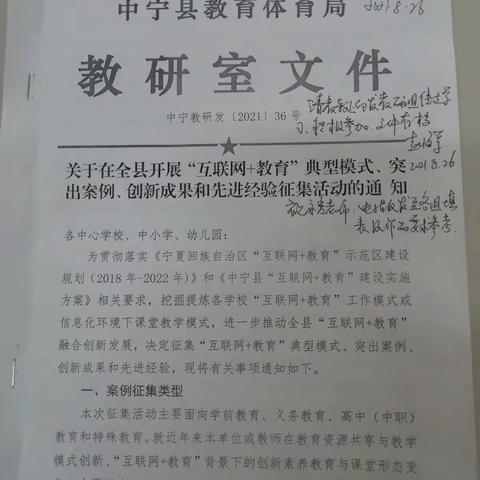 中宁县教育体育局
2021.8.26
教研室文件
中宁教研发〔2021〕36号
关于在全县开展“互联网+教育”典型模式、突
出案例、创新成果和先进经验征集活动的通 知
2021.8.26
各中心学校、中小学、幼儿园：
为贯彻落实《宁夏回族自治区“互联网+教育”示范区建设
规划（2018年-2022年）》和《中宁县“互联网+教育”建设实施
方案》相关要求，挖掘提炼各学校“互联网+教育”工作模式或
信息化环境下课堂教学模式，进一步推动全县“互联网+教育”
融合创新发展，决定征集“互联网+教育”典型模式、突出案例、
创新成果和先进经验，现将有关事项通知如下。
一、案例征集类型
本次征集活动主要面向学前教育、义务教育、高中（中职）
教育和特殊教育。就近年来本单位或教师在教育资源共享与教学
模式创新、“互联网+教育”背景下的创新素养教育与课堂形态变